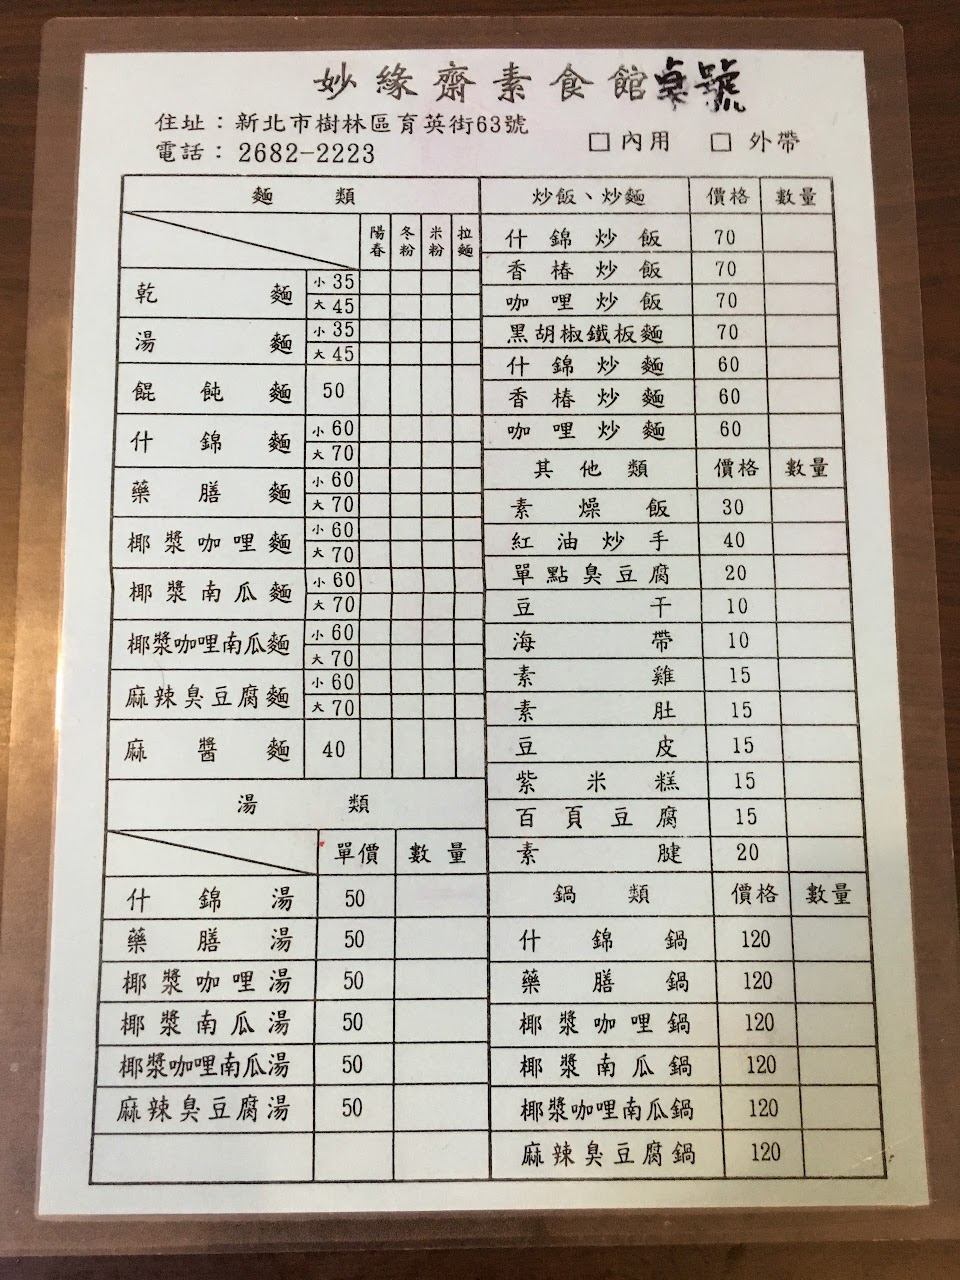 妙緣齋素食館 桌號
住址：新北市樹林區育英街63號
電話：2682-2223
□內用 □外帶
麵類
陽春 冬粉 米粉 拉麵
乾麵 小35
大45
湯麵 小35
大45
餛飩麵 50
什錦麵 小60
大70
藥膳麵 小60
大70
椰漿咖哩麵 小60
大70
椰漿南瓜麵 小60
大70
椰漿咖哩南瓜麵 小60
大70
麻辣臭豆腐麵 小60
大70
麻醬麵 40
湯類
單價 數量
什錦湯 50
藥膳湯 50
椰漿咖哩湯 50
椰漿南瓜湯 50
椰漿咖哩南瓜湯 50
麻辣臭豆腐湯 50
炒飯、炒麵 價格 數量
什錦炒飯 70
香椿炒飯 70
咖哩炒飯 70
黑胡椒鐵板麵 70
什錦炒麵 60
香椿炒麵 60
咖哩炒麵 60
其他類 價格 數量
素燥飯 30
紅油炒手 40
單點臭豆腐 20
豆干 10
海帶 10
素雞 15
素肚 15
豆皮 15
紫米糕 15
百頁豆腐 15
素腱 20
鍋類 價格 數量
什錦鍋 120
藥膳鍋 120
椰漿咖哩鍋 120
椰漿南瓜鍋 120
椰漿咖哩南瓜鍋 120
麻辣臭豆腐鍋 120